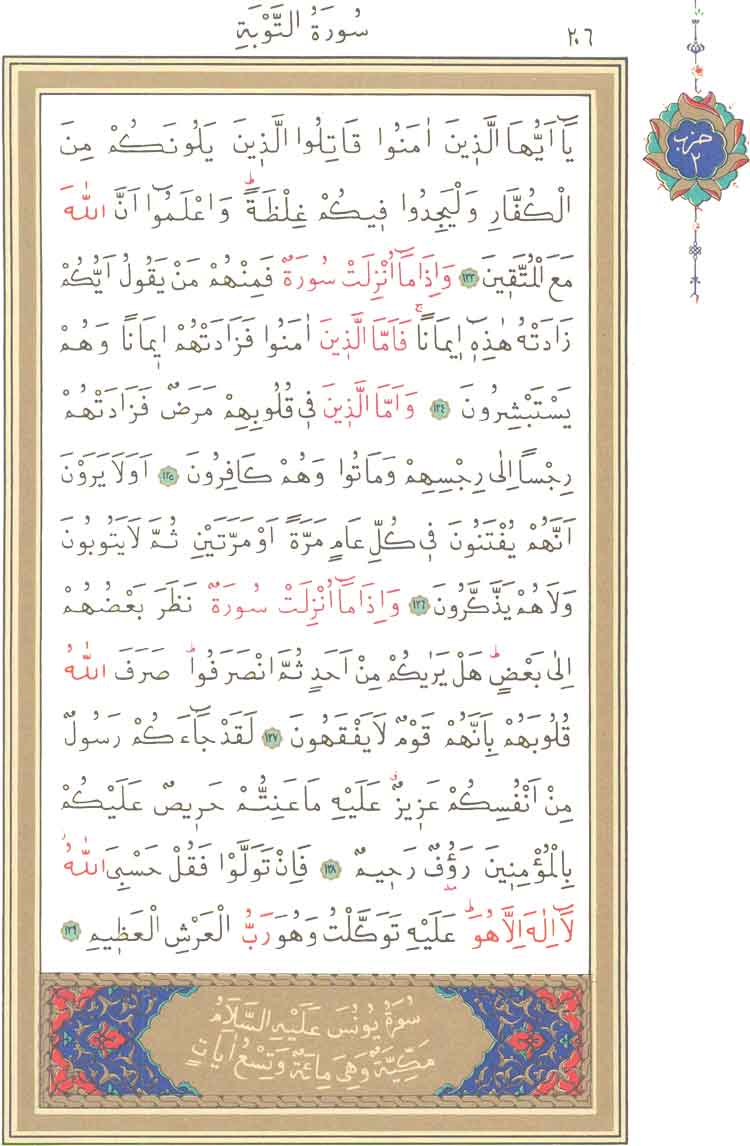 سُورَةُ التَّوْبَةِ
٢٠٦
حزب
٢
يَٓا اَيُّهَا الَّذٖينَ اٰمَنُوا قَاتِلُوا الَّذٖينَ يَلُونَكُمْ مِنَ
الْكُفَّارِ وَلْيَجِدُوا فٖيكُمْ غِلْظَةًؕ وَاعْلَمُٓوا اَنَّ اللّٰهَ
مَعَ الْمُتَّقٖينَ ١٢٣ وَاِذَا مَٓا اُنْزِلَتْ سُورَةٌ فَمِنْهُمْ مَنْ يَقُولُ اَيُّكُمْ
زَادَتْهُ هٰذِهٖٓ اٖيمَانًاۚ فَاَمَّا الَّذٖينَ اٰمَنُوا فَزَادَتْهُمْ اٖيمَانًا وَهُمْ
يَسْتَبْشِرُونَ ١٢٤ وَاَمَّا الَّذٖينَ فٖى قُلُوبِهِمْ مَرَضٌ فَزَادَتْهُمْ
رِجْسًا اِلٰى رِجْسِهِمْ وَمَاتُوا وَهُمْ كَافِرُونَ ١٢٥ اَوَلَا يَرَوْنَ
اَنَّهُمْ يُفْتَنُونَ فٖى كُلِّ عَامٍ مَرَّةً اَوْ مَرَّتَيْنِ ثُمَّ لَا يَتُوبُونَ
وَلَا هُمْ يَذَّكَّرُونَ ١٢٦ وَاِذَا مَٓا اُنْزِلَتْ سُورَةٌ نَظَرَ بَعْضُهُمْ
اِلٰى بَعْضٍؕ هَلْ يَرٰيكُمْ مِنْ اَحَدٍ ثُمَّ انْصَرَفُواؕ صَرَفَ اللّٰهُ
قُلُوبَهُمْ بِاَنَّهُمْ قَوْمٌ لَا يَفْقَهُونَ ١٢٧ لَقَدْ جَٓاءَكُمْ رَسُولٌ
مِنْ اَنْفُسِكُمْ عَزٖيزٌ عَلَيْهِ مَا عَنِتُّمْ حَرٖيصٌ عَلَيْكُمْ
بِالْمُؤْمِنٖينَ رَؤُفٌ رَحٖيمٌ ١٢٨ فَاِنْ تَوَلَّوْا فَقُلْ حَسْبِىَ اللّٰهُ
لَٓا اِلٰهَ اِلَّا هُوَؕ عَلَيْهِ تَوَكَّلْتُ وَهُوَ رَبُّ الْعَرْشِ الْعَظٖيمِ ١٢٩
سُورَةُ يُونُسَ عَلَيْهِ السَّلَامُ
مَكِّيَّةٌ وَهِىَ مِائَةٌ وَتِسْعُ اٰيَاتٍ